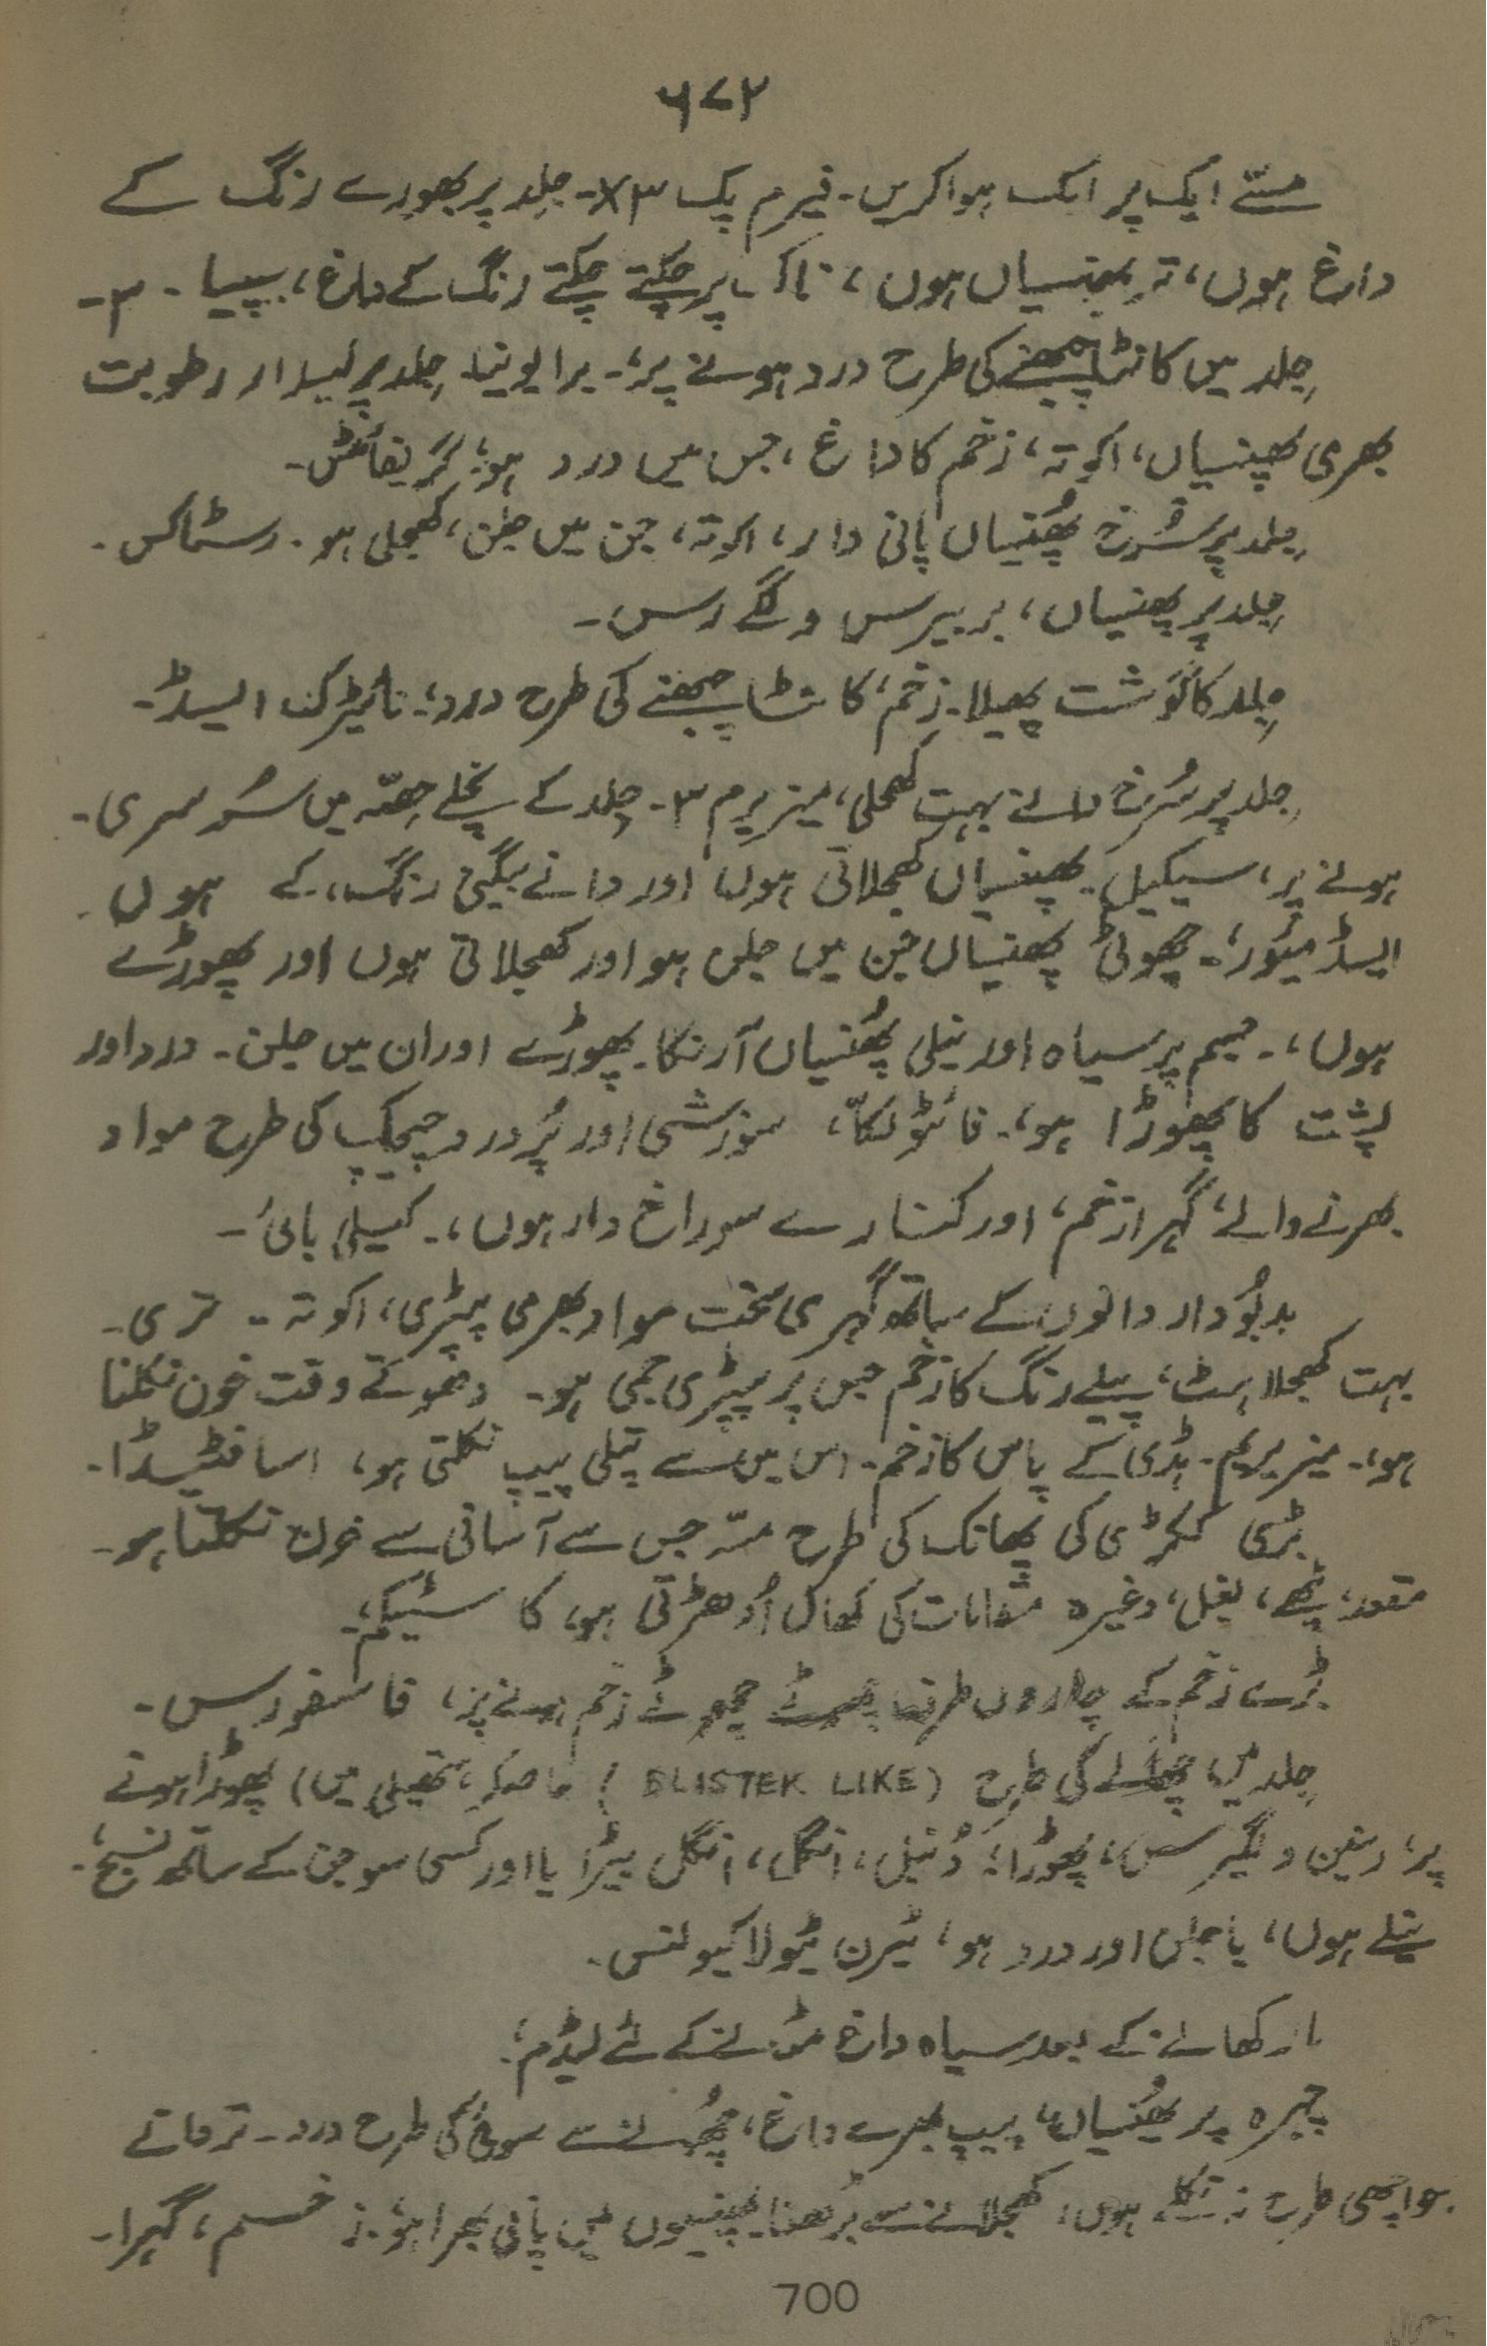 ۶۷۲
مسّے ایک پر ایک ہوا کریں۔ فیرم پک ۳x۔ جلد پر بھورے رنگ کے
داغ ہوں، تر پھنسیاں ہوں، ناک پر چکتے چکتے رنگ کے داغ، سیپیا۔ ۳۔
جِلد میں کانٹا چبھنے کی طرح درد ہونے پر؛۔ برایونیا۔ جلد پر لیسدار رطوبت
بھری پھنسیاں، اکوتہ، زخم کا داغ، جس میں درد ہو؛ گریفائٹس۔
جلد پر سُرخ پھُنسیاں پانی دار، اکوتہ، جن میں جلن، کھجلی ہو۔ رسٹاکس۔
جِلد پر پھنسیاں، بربیرس وگے رس۔
جلد کا گوشت پھیلا۔ زخم، کانٹا چبھنے کی طرح درد؛۔ نائیٹرک ایسڈ۔
جلد پر سُرخ دانے بہت کھجلی، میزیریم ۳۔ جلد کے نچلے حصّہ میں سُرسری۔
ہونے پر، سیکیل۔ پھنسیاں کھجلاتی ہوں اور دانے بیگنی رنگ، کے ہوں
ایسڈ میور؛۔ چھوٹی پھنسیاں جن میں جلن ہو اور کھجلاتی ہوں اور پھوڑے
ہوں،۔ جسم پر سیاہ اور نیلی پھُنسیاں آرنکا۔ پھوڑے اور ان میں جلن۔ درد اور
پشت کا پھوڑا ہو،۔ فائٹولکّا، سوزشی اور پُر درد چیچک کی طرح مواد
بھرنے والے، گہرا زخم، اور کنارے سوراخ دار ہوں،۔ کیلی بائی۔
بدبُودار دانوں کے ساتھ گہری سخت مواد بھری پپڑی، اکوتہ۔ تری۔
بہت کھجلاہٹ، پیلے رنگ کا زخم جس پر پپڑی جمی ہو۔ دھوتے وقت خون نکلنا
ہو،۔ میزیریم۔ ہڈی کے پاس کا زخم۔ اس میں سے پتلی پیپ نکلتی ہو، اسافٹیڈا۔
بڑی ککڑی کی پھانک کی طرح مسّہ جس سے آسانی سے خون نکلتا ہو۔
مقعد، پٹھے، بغل، وغیرہ مقامات کی کھال اُدھڑتی ہو، کاسٹیکم؛
بڑے زخم کے چاروں طرف چھوٹے چھوٹے زخم ہونے پر، فاسفورس۔
جلد میں چھالے کی طرح (BLISTEK LIKE) خاصکر، ہتھیلی میں) پھوڑا ہونے
پر، رینن ولگیرس، پھوڑا؛ دُنبل، انگل، انگل بیڑا یا اور کسی سوجن کے ساتھ نسیج،۔
نیلے ہوں، یا جلن اور درد ہو، ٹیرن ٹیولا کیوبنس۔
مار کھانے کے بعد سیاہ داغ مٹانے کے لئے لیڈم؛
چہرہ پر پھُنسیاں، پیپ بھرے داغ، چھُونے سے سوئی کی طرح درد۔ ترقاتے
جو اچھی طرح نہ نکلے ہوں، کھجلانے سے بڑھنا۔ پھنسیوں میں پانی بھرا ہو،۔ زخم، گہرا۔
700